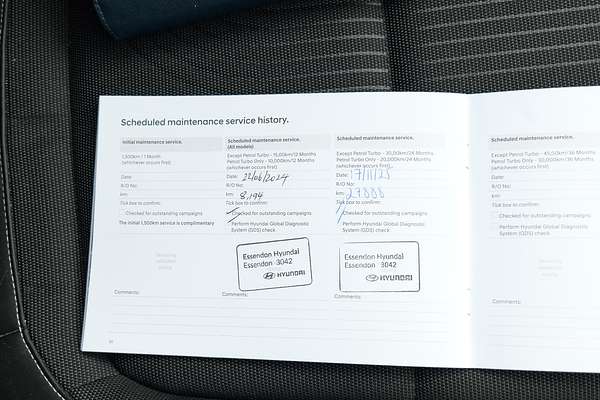 Scheduled maintenance service history.
Initial maintenance service.
1,500km / 1 Month
(whichever occurs first)
Date:
R/O No:
km:
Tick box to confirm:
Checked for outstanding campaigns
The initial 1,500km service is complimentary
Comments:
Scheduled maintenance service.
(All models)
Except Petrol Turbo - 15,000km/12 Months
Petrol Turbo Only - 10,000km/12 Months
(whichever occurs first)
Date: 22/06/2024
R/O No:
km: 8,194
Tick box to confirm:
Checked for outstanding campaigns
Perform Hyundai Global Diagnostic
System (GDS) check
Essendon Hyundai
Essendon 3042
HYUNDAI
Comments:
Scheduled maintenance service.
Except Petrol Turbo - 30,000km/24 Months
Petrol Turbo Only - 20,000km/24 Months
(whichever occurs first)
Date: 17/11/25
R/O No:
km: 27888
Tick box to confirm:
Checked for outstanding campaigns
Perform Hyundai Global Diagnostic
System (GDS) check
Essendon Hyundai
Essendon 3042
HYUNDAI
Comments:
Scheduled maintenance service.
Except Petrol Turbo - 45,000km/36 Months
Petrol Turbo Only - 30,000km/36 Months
(whichever occurs first)
Date:
R/O No:
km:
Tick box to confirm:
Checked for outstanding campaigns
Perform Hyundai Global Diagnostic
System (GDS) check
Comments: